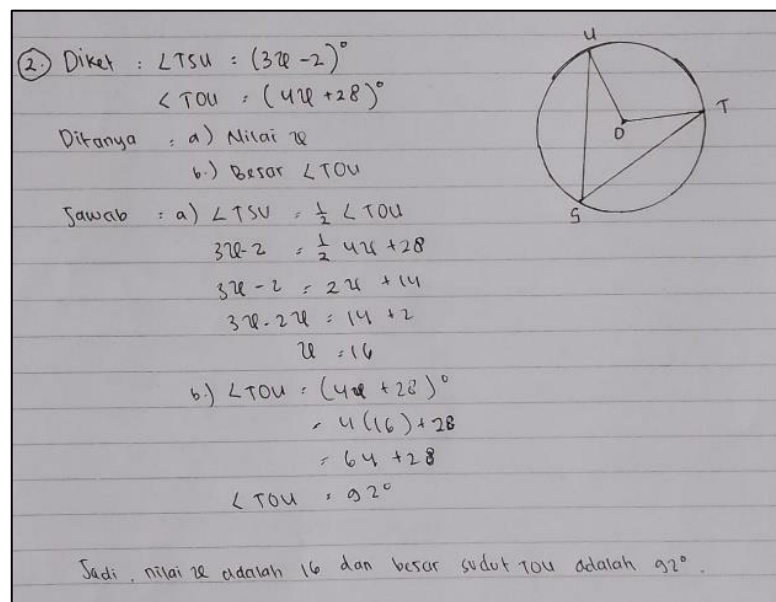 2. Diket : ∠TSU = (3x-2)°
∠TOU = (4x+28)°
Ditanya : a) Nilai x
b.) Besar ∠TOU
Jawab : a) ∠TSU = 1/2 ∠TOU
3x-2 = 1/2 4x+28
3x-2 = 2x +14
3x-2x = 14 +2
x = 16
b.) ∠TOU = (4x +28)°
= 4(16)+28
= 64 +28
∠TOU = 92°
Jadi, nilai x adalah 16 dan besar sudut TOU adalah 92°.
U
T
O
S